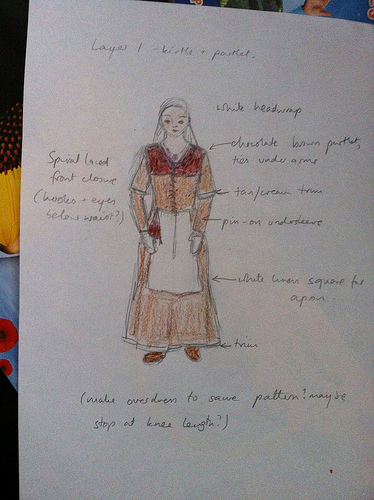 Layer 1 - kirtle + partlet.
white headwrap
chocolate brown partlet,
ties under arms
Spiral laced
front closure
(hooks + eyes
below waist?)
tan/cream trim
pin-on undersleeve
white linen square for
apron
trim
(make overdress to same pattern? maybe
stop at knee length?)